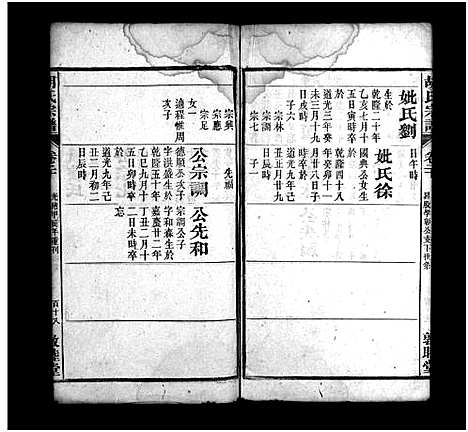 日午時
妣氏劉
生於
乾隆二十年
乙亥七月十
五日寅時卒
於
道光三年癸
未三月十九
日戌時
子六
宗林
宗調
宗七
國典公女生
於
乾隆四十八
年癸卯十一
月廿八日子
時卒於
道光九年己
丑正月廿九
日辰時
子一
妣氏徐
敦睦堂
宗興
宗應
宗足
女一
適程候周
先順
公宗調
德順公次子
字洪盛生於
乾隆五十年
乙巳九月十
五日卯時卒
於
道光九年己
丑二月初二
日辰時
公先和
宗調公子
字和森生於
嘉慶廿二年
丁丑二月十
二日未時卒
忘
胡氏宗譜
卷之
百十八
敦睦堂